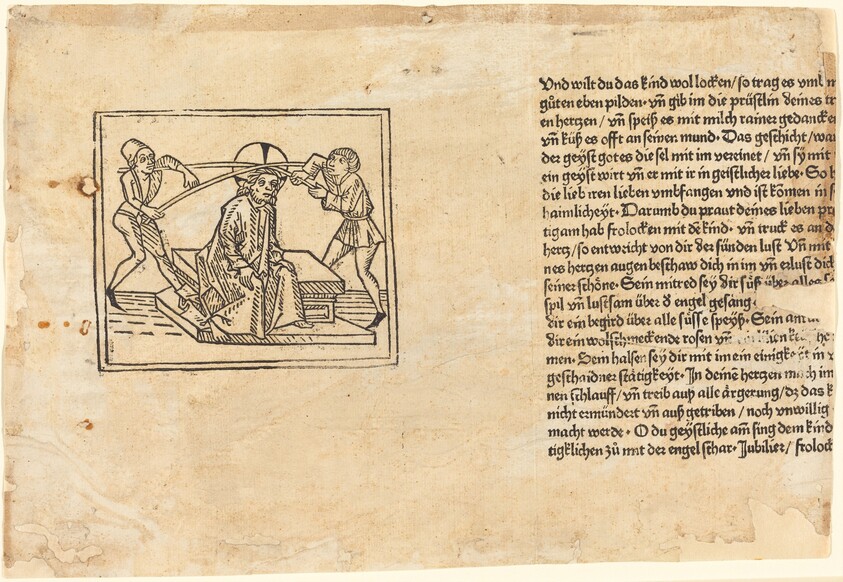 Vnd wilt du das kind wol locken/ so trag es vmb
gůten eben pilden· vñ gib im die prüstlin deines
en hertzen / vñ speiß es mit milch rainer gedancke
vñ küß es offt an seinen mund· Das geschicht/
der geyst gotes die sel mit im vereinet / vñ sy mit
ein geyst wirt vñ er mit ir in geistlicher liebe· So
die lieb iren lieben vmbfangen vnd ist kōmen in
haimlicheyt· Darumb du praut deines lieben
tigam hab frolocken mit dē kind· vñ truck es an
hertz/ so entwicht von dir der sünden lust Vñ mit
nes hertzen augen beschaw dich in im vñ erlust dich
seiner schöne· Sein mitred sey dir süß über alles
spil vñ lustsam über d engel gesang·
dir ein begird über alle süsse speyß· Sein
dir ein wolschmeckende rosen vñ
men· Sein halsen sey dir mit im ein einigkeyt in
geschaidner stätigkeyt· In deinē hertzen mach im
nen schlauff/ vñ treib auß alle ärgerung/ dz das
nicht ermündert vñ auß getriben / noch vnwillig
macht werde· O du geystliche am̄ sing dem kind
tigklichen zů mit der engel schar· Jubilier/ frolock